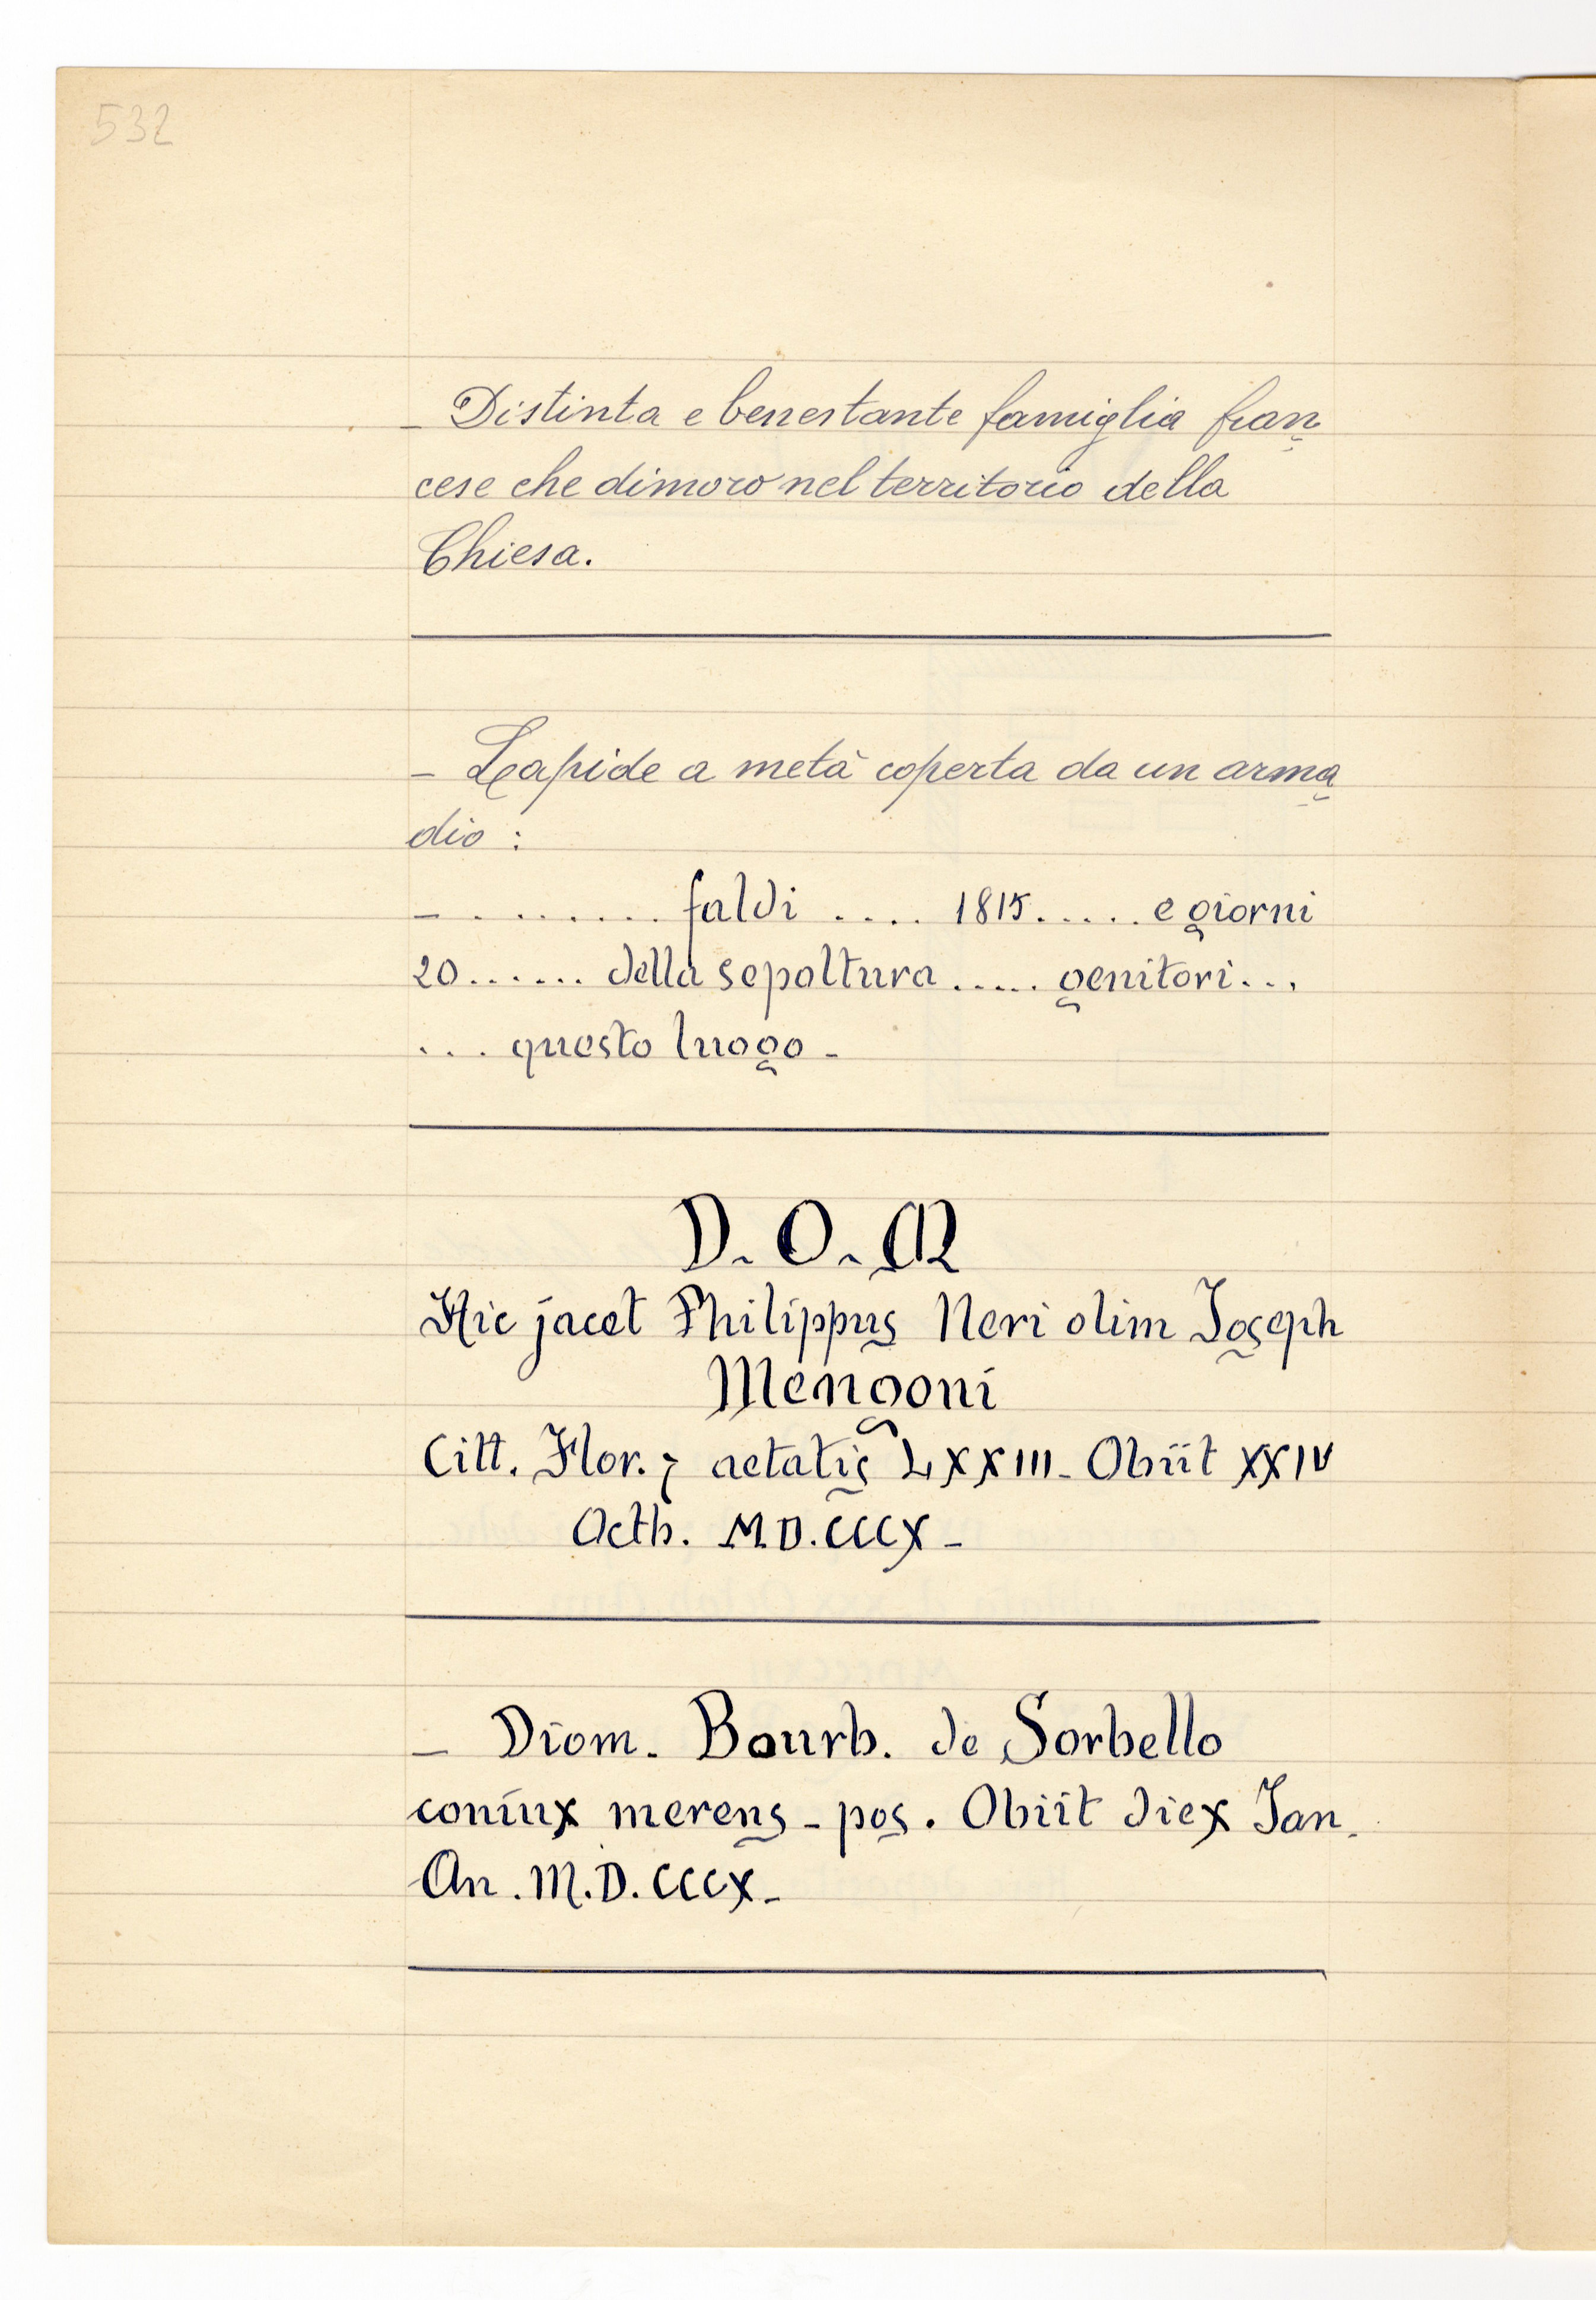 532
- Distinta e benestante famiglia fran
cese che dimoro nel territorio della
Chiesa.
- Lapide a metà coperta da un arma
dio :
- ........ faldi .... 1815..... e giorni
20...... della sepoltura ..... genitori...
... questo luogo -
D. O. M
Hic jacet Philippus Neri olim Joseph
Mengoni
Citt. Flor. aetatis LXXIII - Obiit XXIV
Octb. M.D.CCCX -
- Diom. Bourb. de Sorbello
coniux merens - pos. Obiit die X Jan.
An. M.D.CCCX -